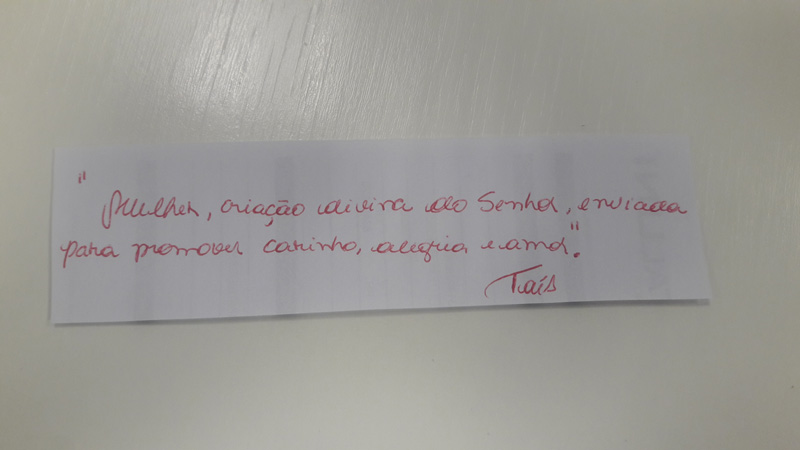 "Mulher, criação divina do Senhor, enviada
para promover carinho, alegria e amor".
Taís